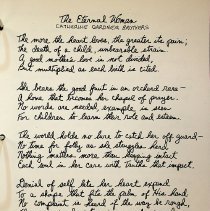 The Eternal Woman
CATHERINE GARDNER BROTHERS
The more the heart loves, the greater its pain;
the death of a child, unbearable strain
A good mother's love is not divided,
But multiplied as each birth is cited.
She bears the good fruit in an orchard rare—
A home that becomes her chapel of prayer.
No words are needed, example is seen
For children to learn their role and esteem.
The world holds no lure to catch her off guard—
No time for folly as she struggles hard
Nothing matters more than keeping intact
Each soul in her care with Truth's that impact.
Denial of self lets her heart expand
To a shape that fits the palm of His hand
No complaint is heard if the way be rough,